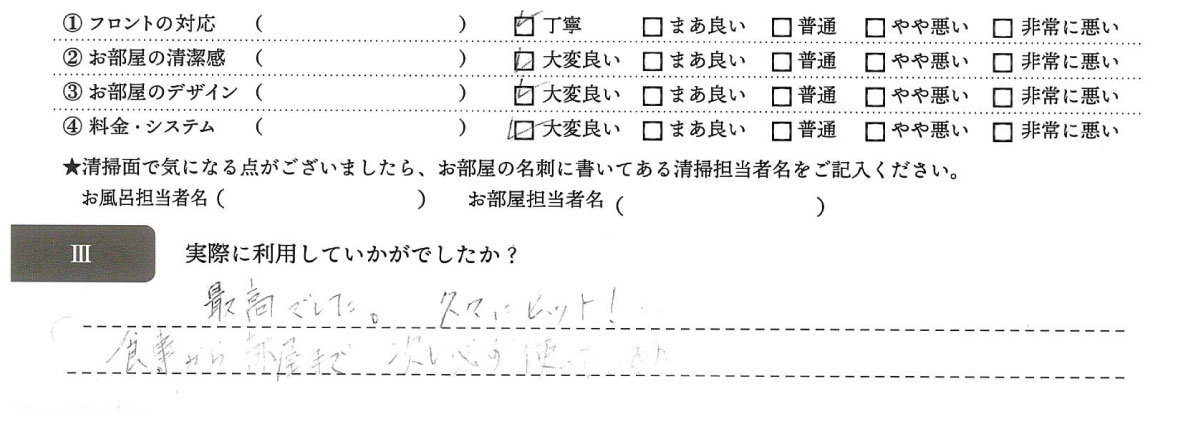 ① フロントの対応 （ ） ☑ 丁寧 □ まあ良い □ 普通 □ やや悪い □ 非常に悪い
② お部屋の清潔感 （ ） ☑ 大変良い □ まあ良い □ 普通 □ やや悪い □ 非常に悪い
③ お部屋のデザイン （ ） ☑ 大変良い □ まあ良い □ 普通 □ やや悪い □ 非常に悪い
④ 料金・システム （ ） ☑ 大変良い □ まあ良い □ 普通 □ やや悪い □ 非常に悪い
★清掃面で気になる点がございましたら、お部屋の名刺に書いてある清掃担当者名をご記入ください。
お風呂担当者名（ ） お部屋担当者名（ ）
Ⅲ 実際に利用していかがでしたか？
最高でした。 久々にヒット！
食事から部屋まで 次も必ず使